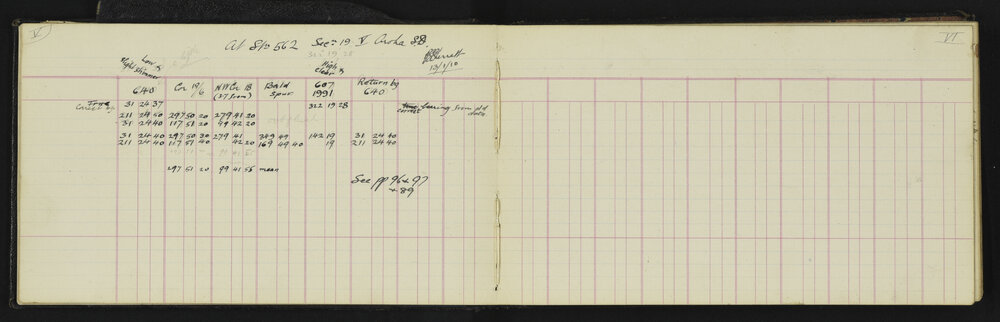 V
VI
At Stn 562 Secn 19 V Aroha S.D.
Secn 19 28
Burrett
19/1/10
Low &
slight shimmer
High &
clear
640
Cr 19/6
N.W Cr 18
(37 from)
Bald
Spur
607
1991
Return by
640
True 31 24 37 322 19 28 correct bearing from pld
data
211 24 50 297 50 20 279 41 20
31 24 40 117 51 20 99 42 20
31 24 40 297 50 30 279 41 349 49 142 19 31 24 40
211 24 40 117 51 40 42 20 169 49 40 19 211 24 40
297 51 20 99 41 55 mean
See pp 96 & 97
& 89